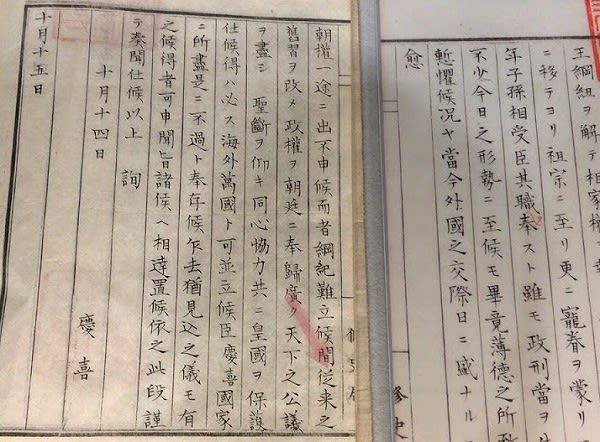 王綱紐ヲ解テ相家權
ニ移テヨリ祖宗ニ至リ更ニ寵眷ヲ蒙リ
年子孫相受臣其職奉スト雖モ政刑當ヲ
不少今日之形勢ニ至候モ畢竟薄德之所致
慙懼候況ヤ當今外國之交際日ニ盛ナル
愈
修史
朝權一途ニ出不申候而者綱紀難立候間従来之
舊習ヲ改メ政權ヲ朝廷ニ奉歸廣ク天下之公議
ヲ盡シ 聖斷ヲ仰キ同心協力共ニ皇國ヲ保護
仕候得ハ必ス海外萬國ト可並立候臣慶喜國家
ニ所盡是ニ不過ト奉存候乍去猶見込之儀モ有
之候得者可申聞旨諸候ヘ相達置候依之此段謹
テ奏聞仕候以上 詢
十月十四日
慶喜
十月十五日